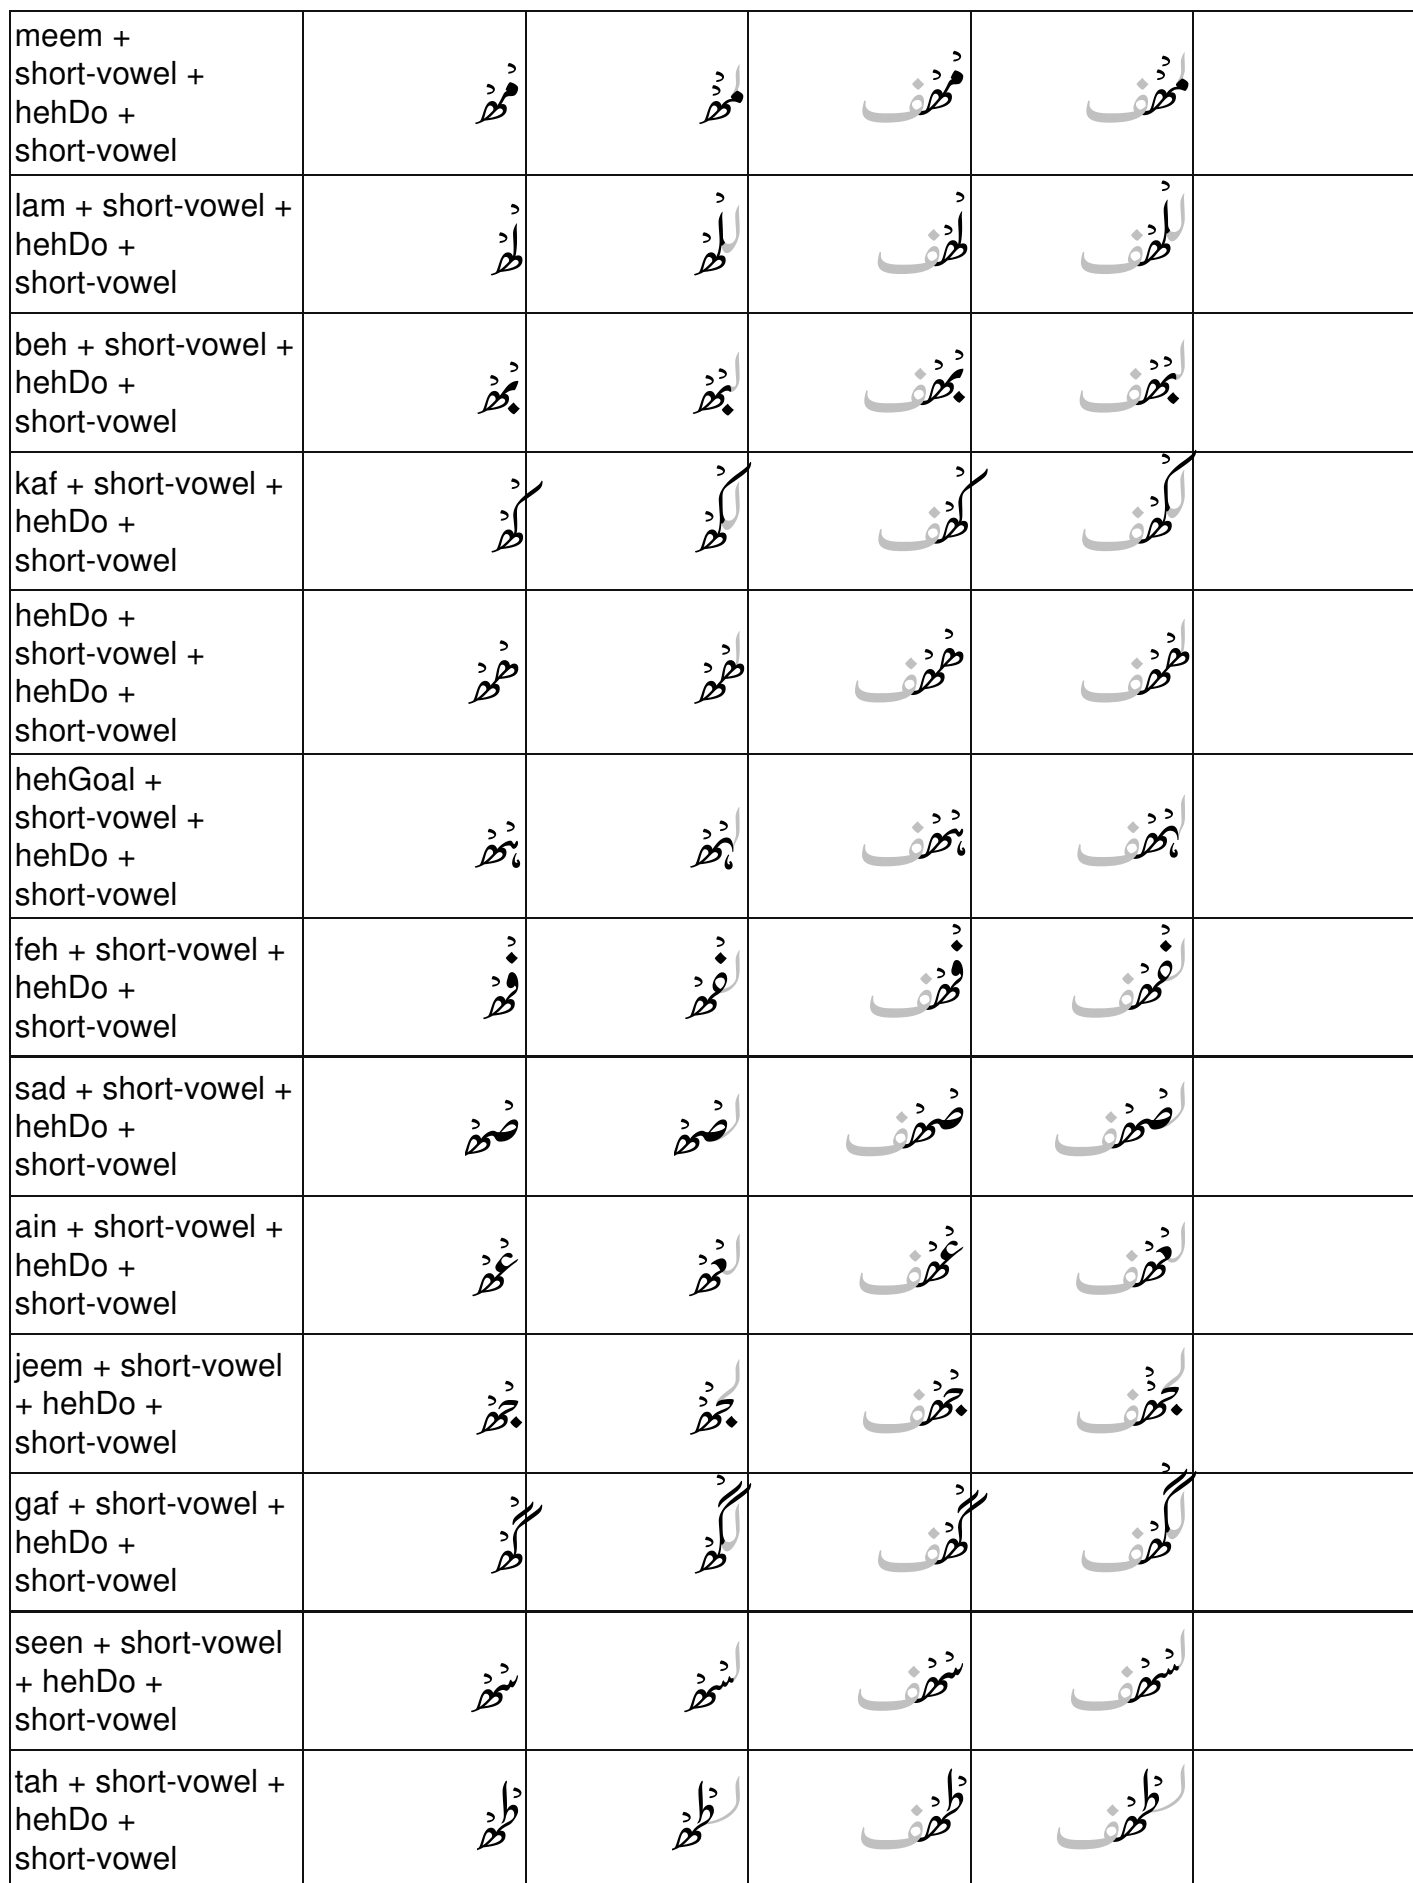 meem +
short-vowel +
hehDo +
short-vowel
مُھُ لمُھُ مُھُف لمُھُف
lam + short-vowel +
hehDo +
short-vowel
لُھُ للُھُ لُھُف للُھُف
beh + short-vowel +
hehDo +
short-vowel
بُھُ لبُھُ بُھُف لبُھُف
kaf + short-vowel +
hehDo +
short-vowel
کُھُ لکُھُ کُھُف لکُھُف
hehDo +
short-vowel +
hehDo +
short-vowel
ھُھُ لھُھُ ھُھُف لھُھُف
hehGoal +
short-vowel +
hehDo +
short-vowel
ہُھُ لہُھُ ہُھُف لہُھُف
feh + short-vowel +
hehDo +
short-vowel
فُھُ لفُھُ فُھُف لفُھُف
sad + short-vowel +
hehDo +
short-vowel
صُھُ لصُھُ صُھُف لصُھُف
ain + short-vowel +
hehDo +
short-vowel
عُھُ لعُھُ عُھُف لعُھُف
jeem + short-vowel
+ hehDo +
short-vowel
جُھُ لجُھُ جُھُف لجُھُف
gaf + short-vowel +
hehDo +
short-vowel
گُھُ لگُھُ گُھُف لگُھُف
seen + short-vowel
+ hehDo +
short-vowel
سُھُ لسُھُ سُھُف لسُھُف
tah + short-vowel +
hehDo +
short-vowel
طُھُ لطُھُ طُھُف لطُھُف